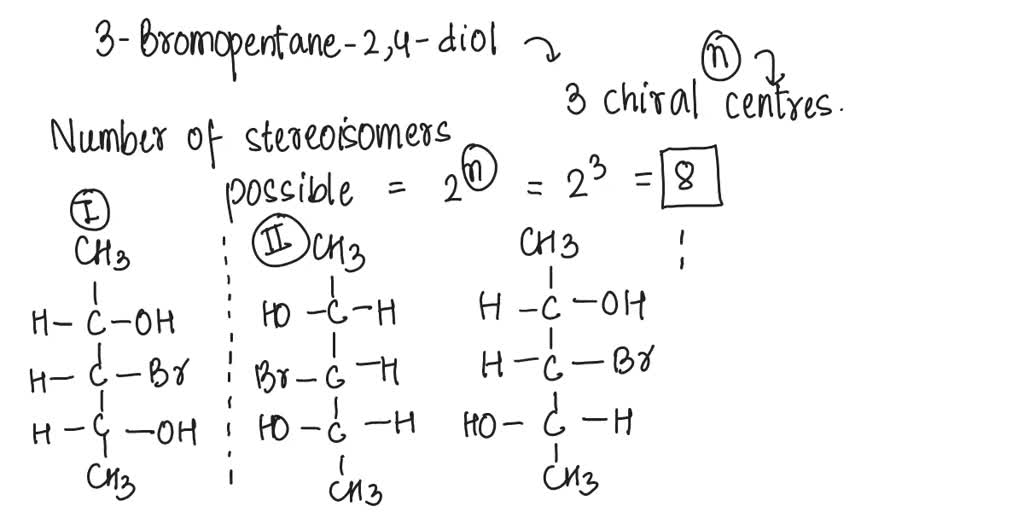 3-Bromopentane-2,4-diol
n
3 chiral centres.
Number of stereoisomers
possible = 2^n = 2^3 = 8
I
CH3
H-C-OH
H-C-Br
H-C-OH
CH3
II
CH3
HO-C-H
Br-C-H
HO-C-H
CH3
CH3
H-C-OH
H-C-Br
HO-C-H
CH3